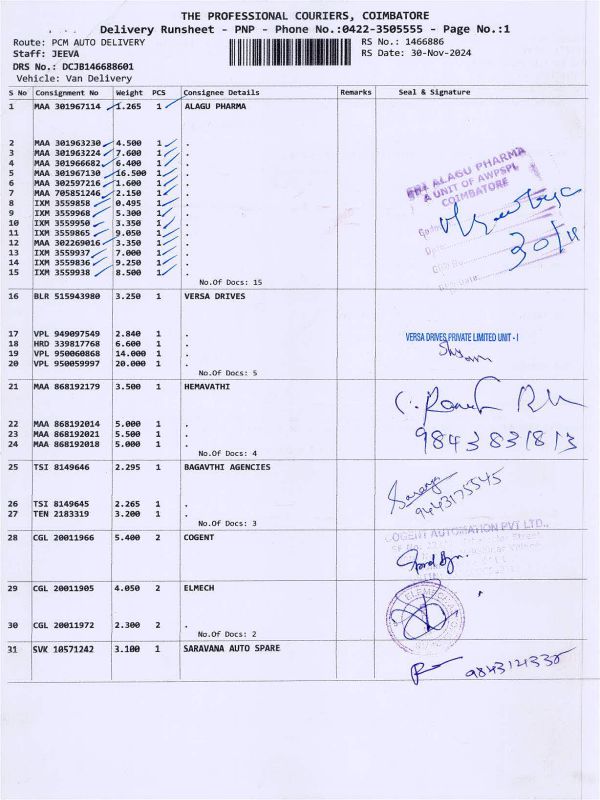 THE PROFESSIONAL COURIERS, COIMBATORE
Delivery Runsheet - PNP - Phone No.:0422-3505555 - Page No.:1
Route: PCM AUTO DELIVERY RS No.: 1466886
Staff: JEEVA RS Date: 30-Nov-2024
DRS No.: DCJB146688601
Vehicle: Van Delivery
S No Consignment No Weight PCS Consignee Details Remarks Seal & Signature
1 MAA 301967114 1.265 1 ALAGU PHARMA
2 MAA 301963230 4.500 1 .
3 MAA 301963224 7.600 1 .
4 MAA 301966682 6.400 1 .
5 MAA 301967130 16.500 1 .
6 MAA 302597216 1.600 1 .
7 MAA 705851246 2.150 1 .
8 IXM 3559858 0.495 1 .
9 IXM 3559968 5.300 1 .
10 IXM 3559950 3.350 1 .
11 IXM 3559865 9.050 1 .
12 MAA 302269016 3.350 1 .
13 IXM 3559937 7.000 1 .
14 IXM 3559836 9.250 1 .
15 IXM 3559938 8.500 1 .
No.Of Docs: 15
SRI ALAGU PHARMA
A UNIT OF AWPSPL
COIMBATORE
30/11
16 BLR 515943980 3.250 1 VERSA DRIVES
17 VPL 949097549 2.840 1 .
18 HRD 339817768 6.600 1 .
19 VPL 950060868 14.000 1 .
20 VPL 950059997 20.000 1 .
No.Of Docs: 5
VERSA DRIVES PRIVATE LIMITED UNIT - I
21 MAA 868192179 3.500 1 HEMAVATHI
22 MAA 868192014 5.000 1 .
23 MAA 868192021 5.500 1 .
24 MAA 868192018 5.000 1 .
No.Of Docs: 4
9843831813
25 TSI 8149646 2.295 1 BAGAVTHI AGENCIES
26 TSI 8149645 2.265 1 .
27 TEN 2183319 3.200 1 .
No.Of Docs: 3
9443175545
28 CGL 20011966 5.400 2 COGENT
COGENT AUTOMATION PVT LTD.,
29 CGL 20011905 4.050 2 ELMECH
30 CGL 20011972 2.300 2 .
No.Of Docs: 2
31 SVK 10571242 3.100 1 SARAVANA AUTO SPARE